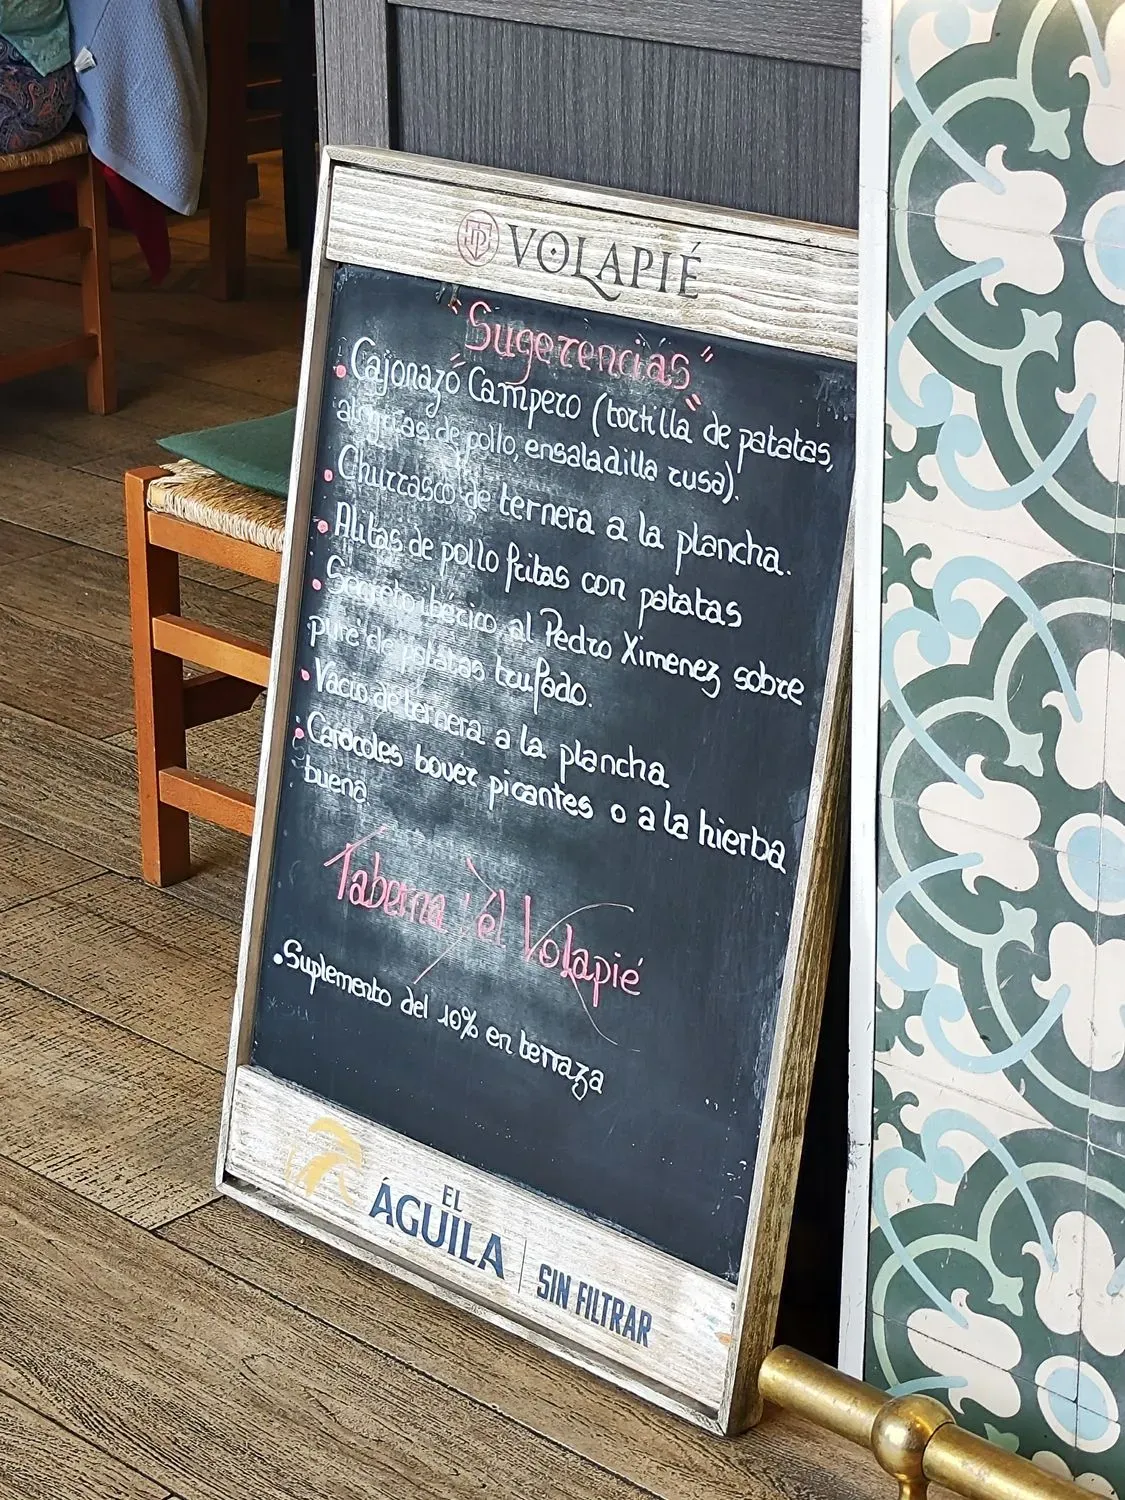 VOLAPIÉ
"Sugerencias"
• Cajonazo Campero (tortilla de patatas,
alitas de pollo, ensaladilla rusa).
• Churrasco de ternera a la plancha.
• Alitas de pollo fritas con patatas
• Secreto ibérico al Pedro Ximenez sobre
puré de patatas trufado.
• Vacio de ternera a la plancha
• Caracoles bover picantes o a la hierba
buena
Taberna el Volapié
• Suplemento del 10% en terraza
EL
ÁGUILA
SIN FILTRAR